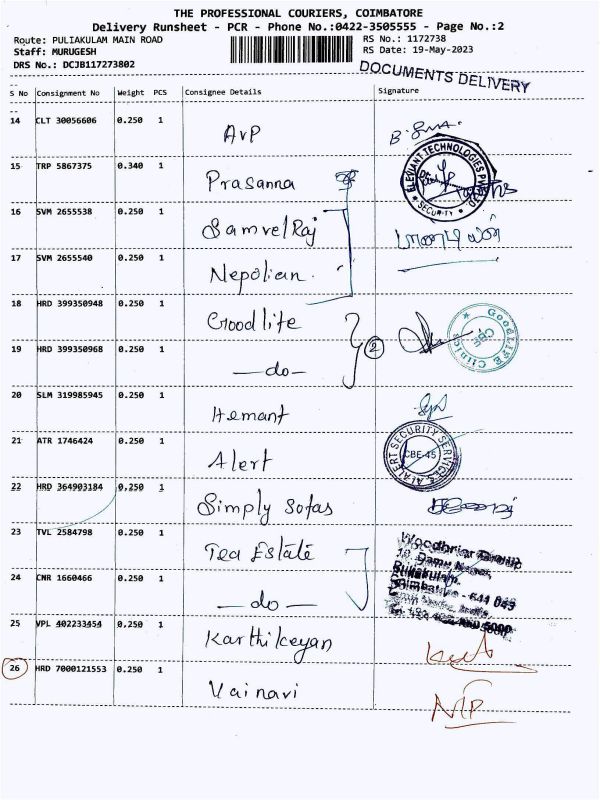 THE PROFESSIONAL COURIERS, COIMBATORE
Delivery Runsheet - PCR - Phone No.:0422-3505555 - Page No.:2
Route: PULIAKULAM MAIN ROAD
RS No.: 1172738
Staff: MURUGESH
RS Date: 19-May-2023
DRS No.: DCJB117273802
DOCUMENTS DELIVERY
S No Consignment No Weight PCS Consignee Details Signature
14 CLT 30056606 0.250 1 AVP
15 TRP 5867375 0.340 1 Prasanna
ELEVIANT TECHNOLOGIES PVT LTD
* SECURITY *
16 SVM 2655538 0.250 1 SamvelRaj
17 SVM 2655540 0.250 1 Nepolian.
18 HRD 399350948 0.250 1 Goodlite
2
GOODLIFE Clinic CBE
19 HRD 399350968 0.250 1 —do—
20 SLM 319985945 0.250 1 Hemant
21 ATR 1746424 0.250 1 Alert
ALERT SECURITY SERVICES
CBE-45
22 HRD 364903184 0,250 1 Simply Sofas
23 TVL 2584798 0.250 1 Tea Estate
Woodbriar Group
24 CNR 1660466 0.250 1 —do—
25 VPL 402233454 0,250 1 Karthikeyan
26 HRD 7000121553 0.250 1 Vainavi
NTP